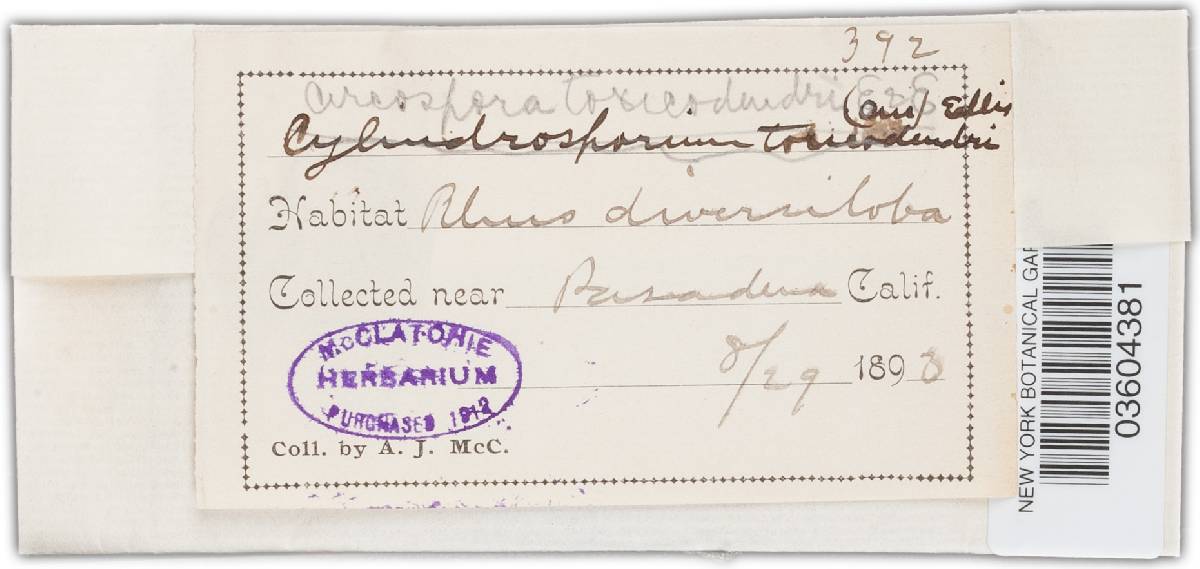 392
Cercospora toxicodendri E & E
(Curt) Ellis
Cylindrosporium toxicodendri
Habitat Rhus diversiloba
Collected near Pasadena Calif.
8/29 1893
McCLATCHIE
HERBARIUM
PURCHASED 1912
Coll. by A. J. McC.
NEW YORK BOTANICAL GAR
03604381